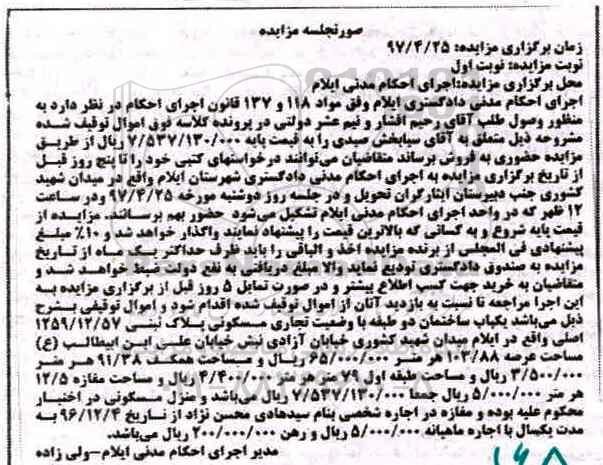 صورتجلسه مزایده
زمان برگزاری مزایده: ۹۷/۴/۲۵
نوبت مزایده: نوبت اول
محل برگزاری مزایده:اجرای احکام مدنی ایلام
اجرای احکام مدنی دادگستری ایلام وفق مواد ۱۱۸ و ۱۳۷ قانون اجرای احکام در نظر دارد به
منظور وصول طلب آقای رحیم افشار و نیم عشر دولتی در پرونده کلاسه فوق اموال توقیف شده
مشروحه ذیل متعلق به آقای سیابخش صیدی را به قیمت پایه ۷/۵۳۷/۱۳۰/۰۰۰ ریال از طریق
مزایده حضوری به فروش برساند متقاضیان می‌توانند درخواستهای کتبی خود را تا پنج روز قبل
از تاریخ برگزاری مزایده به اجرای احکام مدنی دادگستری شهرستان ایلام واقع در میدان شهید
کشوری جنب دبیرستان ایثارگران تحویل و در جلسه روز دوشنبه مورخه ۹۷/۴/۲۵ ودر ساعت
۱۲ ظهر که در واحد اجرای احکام مدنی ایلام تشکیل می‌شود حضور بهم برسانند. مزایده از
قیمت پایه شروع و به کسانی که بالاترین قیمت را پیشنهاد نمایند واگذار خواهد شد و ۱۰٪ مبلغ
پیشنهادی فی المجلس از برنده مزایده اخذ و الباقی را باید ظرف حداکثر یک ماه از تاریخ
مزایده به صندوق دادگستری تودیع نماید والا مبلغ دریافتی به نفع دولت ضبط خواهد شد و
متقاضیان به خرید جهت کسب اطلاع بیشتر و در صورت تمایل ۵ روز قبل از برگزاری مزایده به
این اجرا مراجعه تا نسبت به بازدید آنان از اموال توقیف شده اقدام شود و اموال توقیفی بشرح
ذیل می‌باشد یکباب ساختمان دو طبقه با وضعیت تجاری مسکونی پلاک ثبتی ۱۲۵۹/۱۲/۵۷
اصلی واقع در ایلام میدان شهید کشوری خیابان آزادی نبش خیابان علی ابن ابیطالب (ع)
مساحت عرصه ۱۰۲/۸۸ هر متر ۶۵/۰۰۰/۰۰۰ ریال و مساحت همکف ۹۱/۳۸ هر متر
۳/۵۰۰/۰۰۰ ریال و مساحت طبقه اول ۷۹ متر هر متر ۴/۴۰۰/۰۰۰ ریال و مساحت مغازه ۱۲/۵
هر متر ۵/۰۰۰/۰۰۰ ریال جمعا ۷/۵۳۷/۱۳۰/۰۰۰ ریال می‌باشد و منزل مسکونی در اختیار
محکوم علیه بوده و مغازه در اجاره شخصی بنام سیدهادی محسن نژاد از تاریخ ۹۶/۱۲/۴ به
مدت یکسال با اجاره ماهیانه ۵/۰۰۰/۰۰۰ ریال و رهن ۲۰۰/۰۰۰/۰۰۰ ریال می‌باشد.
مدیر اجرای احکام مدنی ایلام-ولی زاده